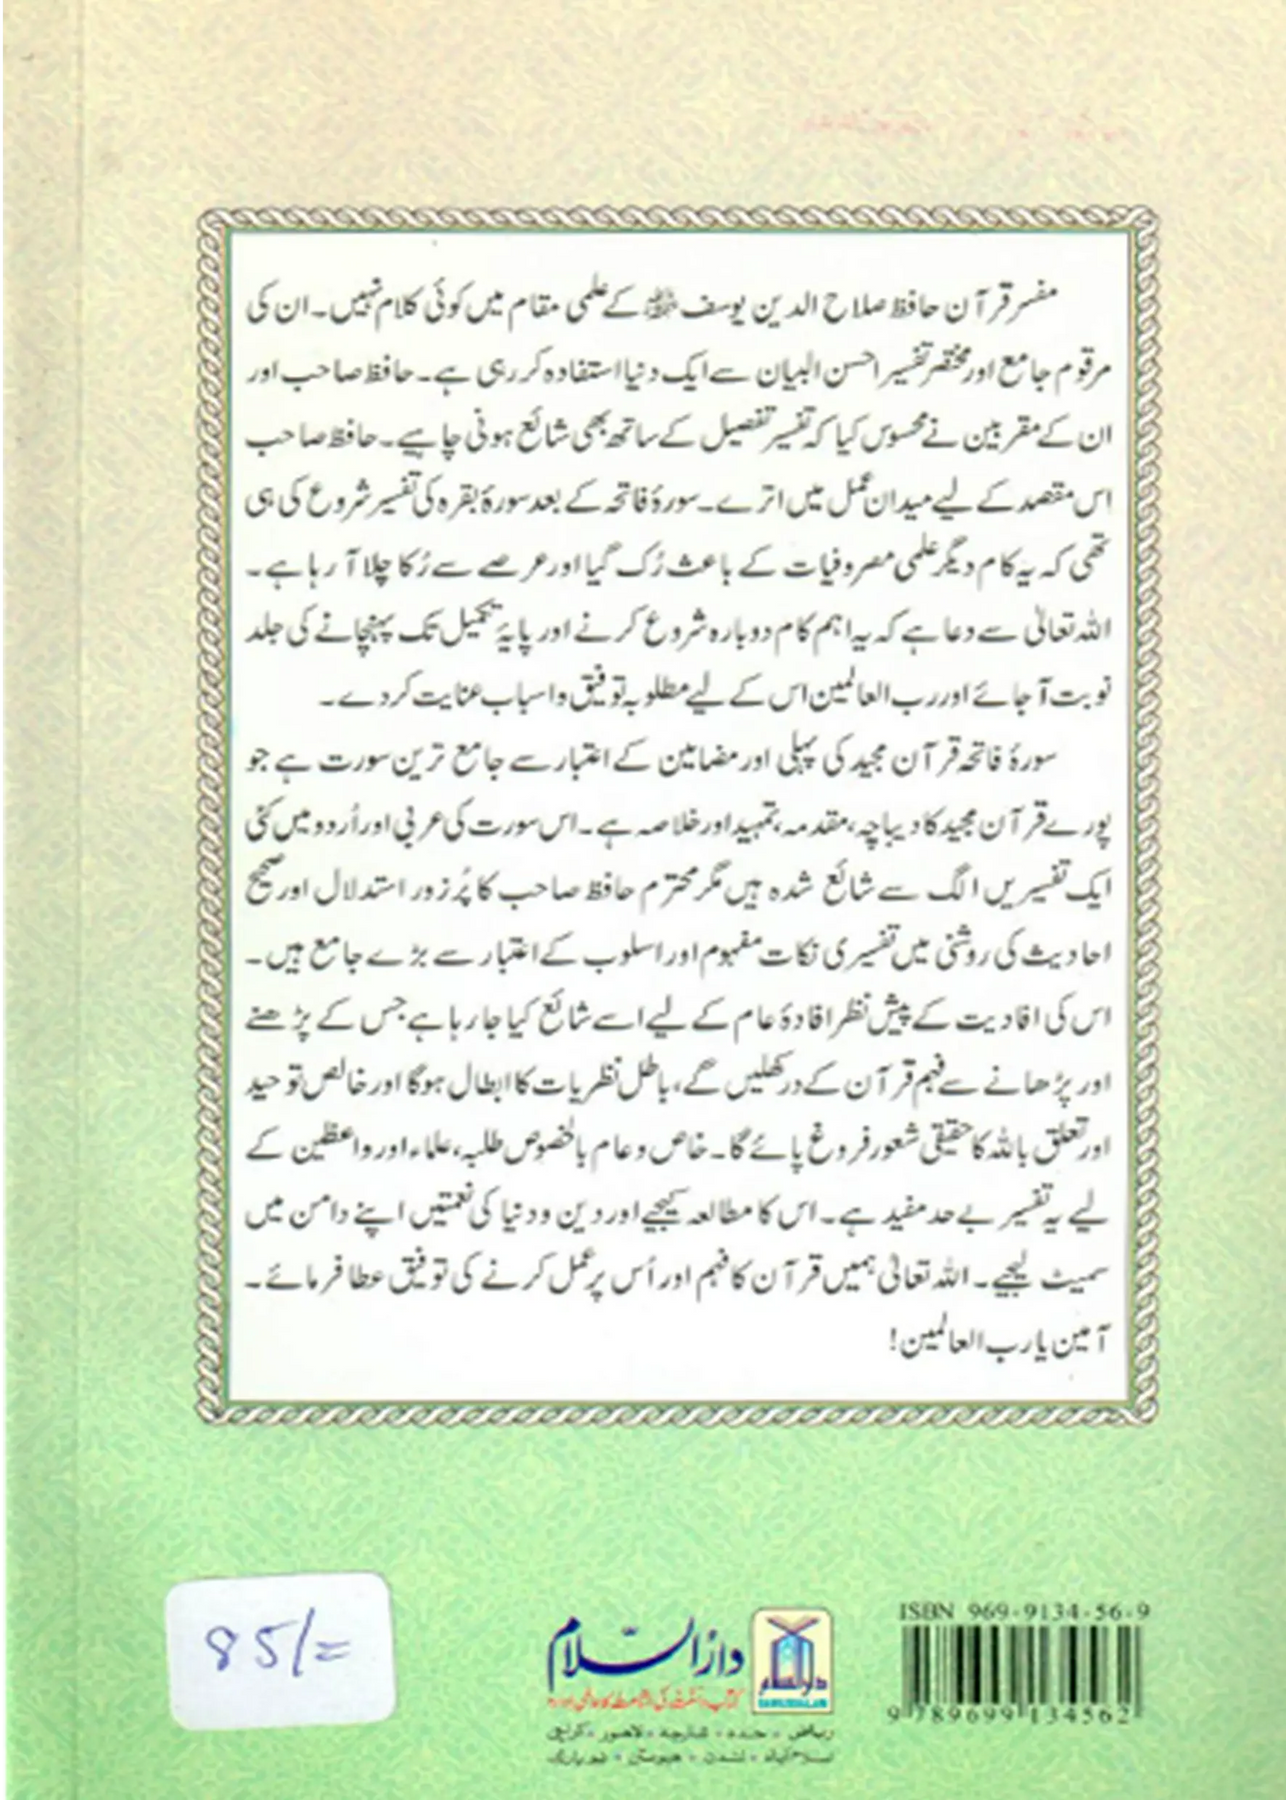 مفسر قرآن حافظ صلاح الدین یوسف ﷾ کے علمی مقام میں کوئی کلام نہیں۔ ان کی
مرقوم جامع اور مختصر تفسیر احسن البیان سے ایک دنیا استفادہ کر رہی ہے۔ حافظ صاحب اور
ان کے مقربین نے محسوس کیا کہ تفسیر تفصیل کے ساتھ بھی شائع ہونی چاہیے۔ حافظ صاحب
اس مقصد کے لیے میدان عمل میں اترے۔ سورۂ فاتحہ کے بعد سورۂ بقرہ کی تفسیر شروع کی ہی
تھی کہ یہ کام دیگر علمی مصروفیات کے باعث رُک گیا اور عرصے سے رُکا چلا آ رہا ہے۔
اللہ تعالیٰ سے دعا ہے کہ یہ اہم کام دوبارہ شروع کرنے اور پایۂ تکمیل تک پہنچانے کی جلد
نوبت آ جائے اور رب العالمین اس کے لیے مطلوبہ توفیق و اسباب عنایت کر دے۔
سورۂ فاتحہ قرآن مجید کی پہلی اور مضامین کے اعتبار سے جامع ترین سورت ہے جو
پورے قرآن مجید کا دیباچہ، مقدمہ، تمہید اور خلاصہ ہے۔ اس سورت کی عربی اور اُردو میں کئی
ایک تفسیریں الگ سے شائع شدہ ہیں مگر محترم حافظ صاحب کا پُرزور استدلال اور صحیح
احادیث کی روشنی میں تفسیری نکات مفہوم اور اسلوب کے اعتبار سے بڑے جامع ہیں۔
اس کی افادیت کے پیش نظر افادۂ عام کے لیے اسے شائع کیا جا رہا ہے جس کے پڑھنے
اور پڑھانے سے فہم قرآن کے در کھلیں گے، باطل نظریات کا ابطال ہوگا اور خالص توحید
اور تعلق باللہ کا حقیقی شعور فروغ پائے گا۔ خاص و عام بالخصوص طلبہ، علماء اور واعظین کے
لیے یہ تفسیر بے حد مفید ہے۔ اس کا مطالعہ کیجیے اور دین و دنیا کی نعمتیں اپنے دامن میں
سمیٹ لیجیے۔ اللہ تعالیٰ ہمیں قرآن کا فہم اور اُس پر عمل کرنے کی توفیق عطا فرمائے۔
آمین یا رب العالمین!
ISBN 969-9134-56-9
9 789699 134562
دارُالسّلام
دارالسلام
DARUSSALAM
کتاب و سنت کی اشاعت کا عالمی ادارہ
ریاض • جدہ • شارجہ • لاہور • کراچی
اسلام آباد • لندن • ہیوسٹن • نیو یارک
85/=